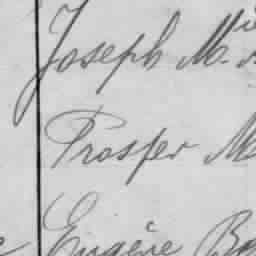 Joseph M
Prosper M
Eugène B